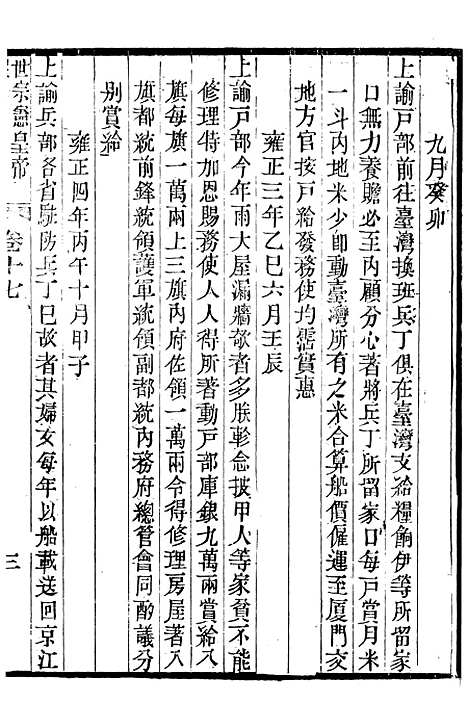 九月癸卯
上諭戶部前往臺灣換班兵丁俱在臺灣支給糧餉伊等所留家
口無力養贍必至內顧分心著將兵丁所留家口每戶賞月米
一斗內地米少即動臺灣所有之米合算船價僱運至厦門交
地方官按戶給發務使均霑實惠
雍正三年乙巳六月壬辰
上諭戶部今年雨大屋漏牆欹者多朕軫念披甲人等家貧不能
修理特加恩賜務使人人得所著動戶部庫銀九萬兩賞給八
旗每旗一萬兩上三旗內府佐領一萬兩令得修理房屋著八
旗都統前鋒統領護軍統領副都統內務府總管會同酌議分
別賞給
雍正四年丙午十月甲子
上諭兵部各省駐防兵丁巳故者其婦女每年以船載送回京江
世宗憲皇帝 卷十七 三